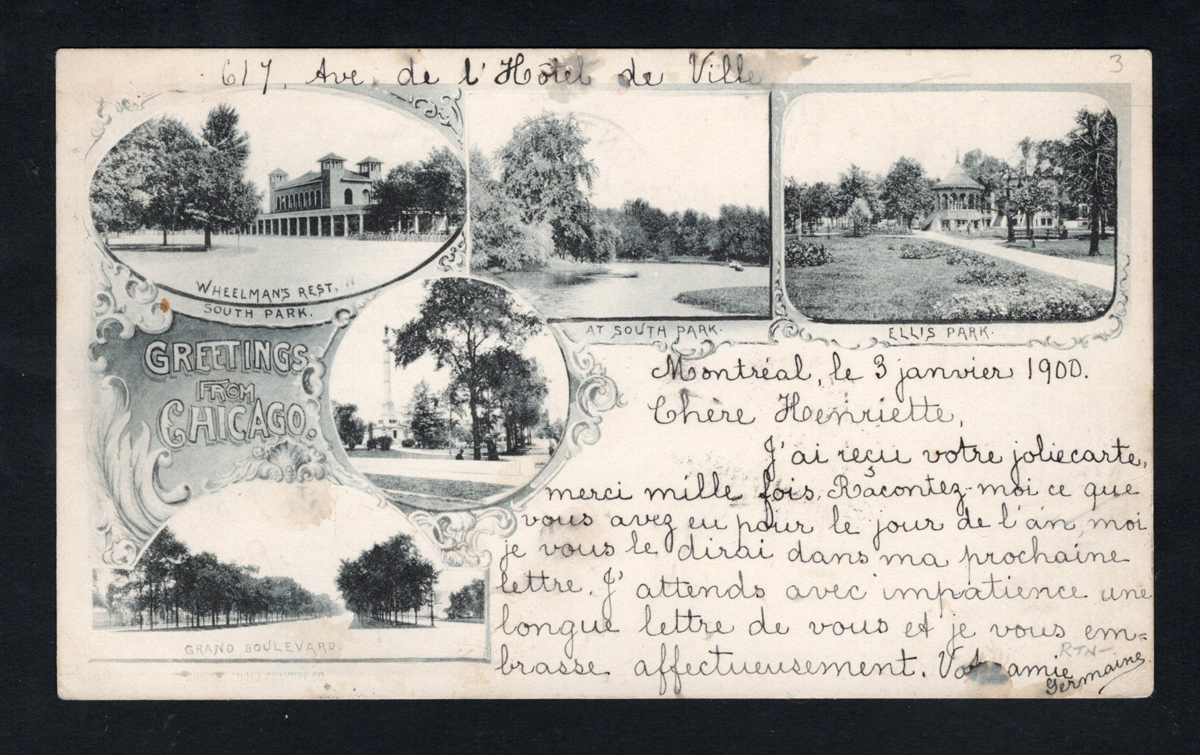 617, Ave. de l'Hôtel de Ville
3
WHEELMAN'S REST,
SOUTH PARK.
AT SOUTH PARK.
ELLIS PARK.
GREETINGS
FROM
CHICAGO.
GRAND BOULEVARD.
Montréal, le 3 janvier 1900.
Chère Henriette,
J'ai reçu votre jolie carte,
merci mille fois. Racontez-moi ce que
vous avez eu pour le jour de l'an, moi
je vous le dirai dans ma prochaine
lettre. J'attends avec impatience une
longue lettre de vous et je vous em=
brasse affectueusement. amie
Germaine
RTN-